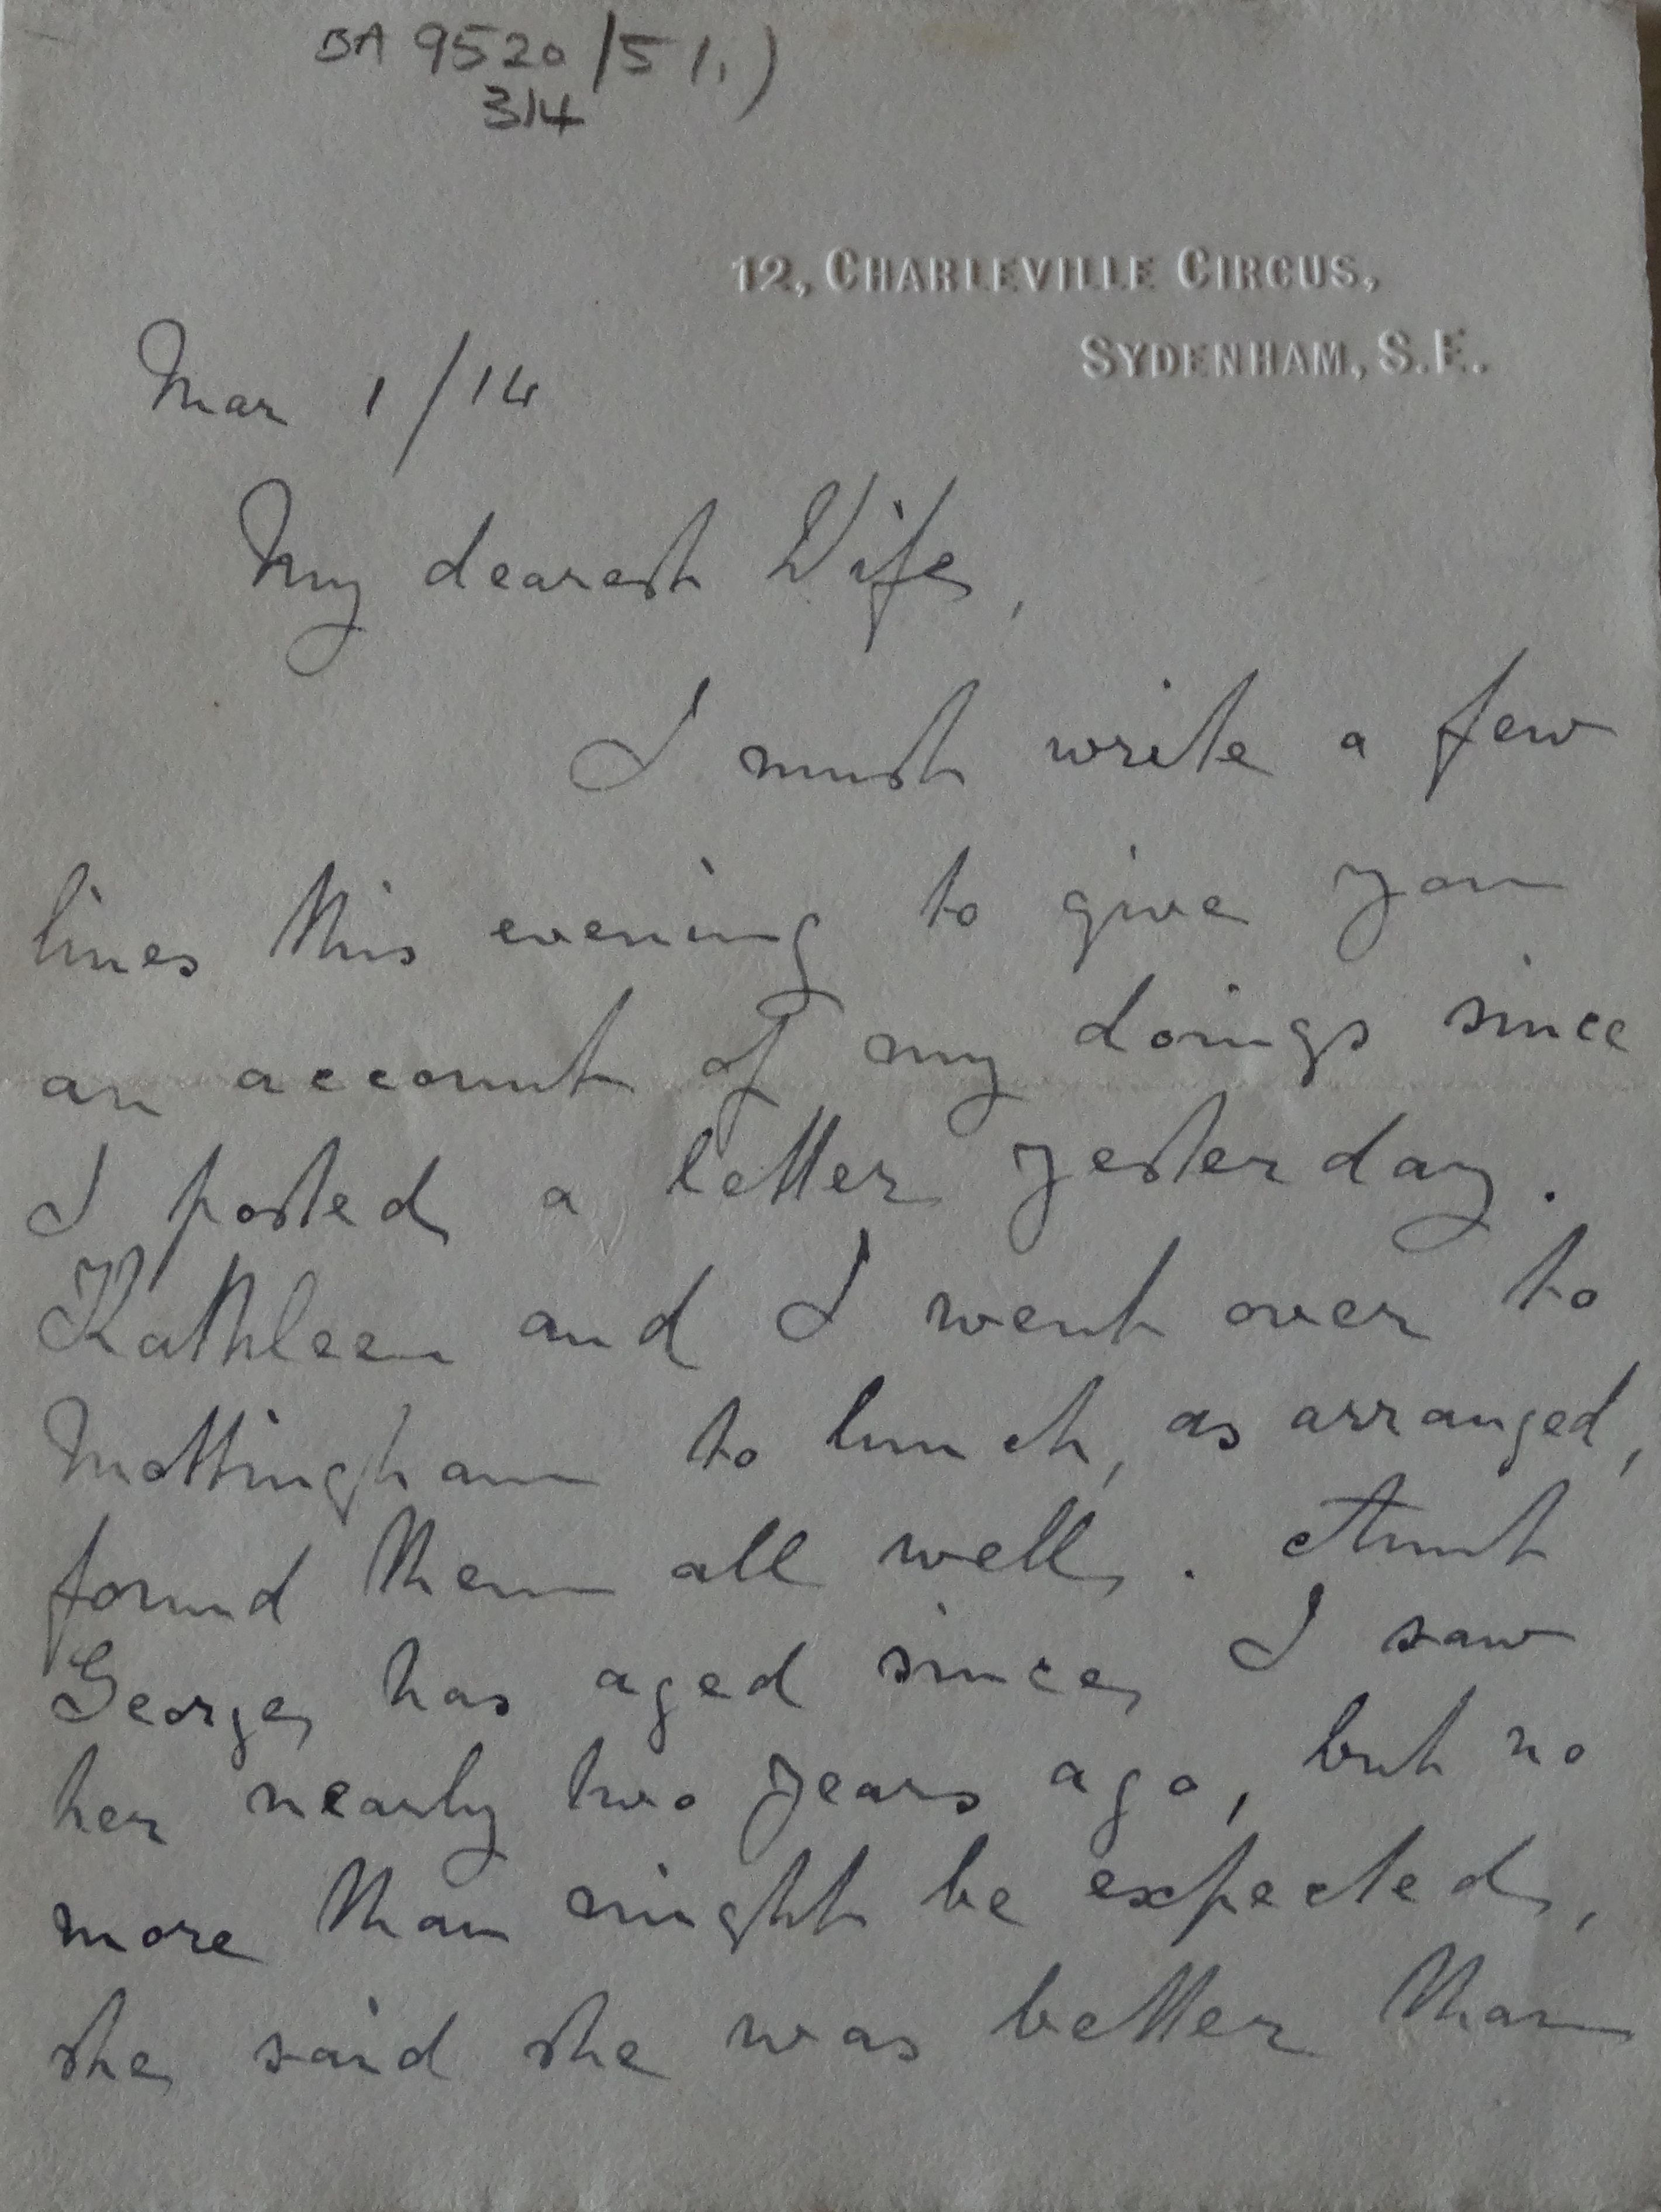 BA 9520/5 1,)
314
12, CHARLEVILLE CIRCUS,
SYDENHAM, S.E.
Mar 1/14
My dearest Wife,
I must write a few
lines this evening to give you
an account of my doings since
I posted a letter yesterday.
Kathleen and I went over to
Mottingham to lunch, as arranged,
found them all well. Aunt
George has aged since I saw
her nearly two years ago, but no
more than might be expected,
she said she was better than